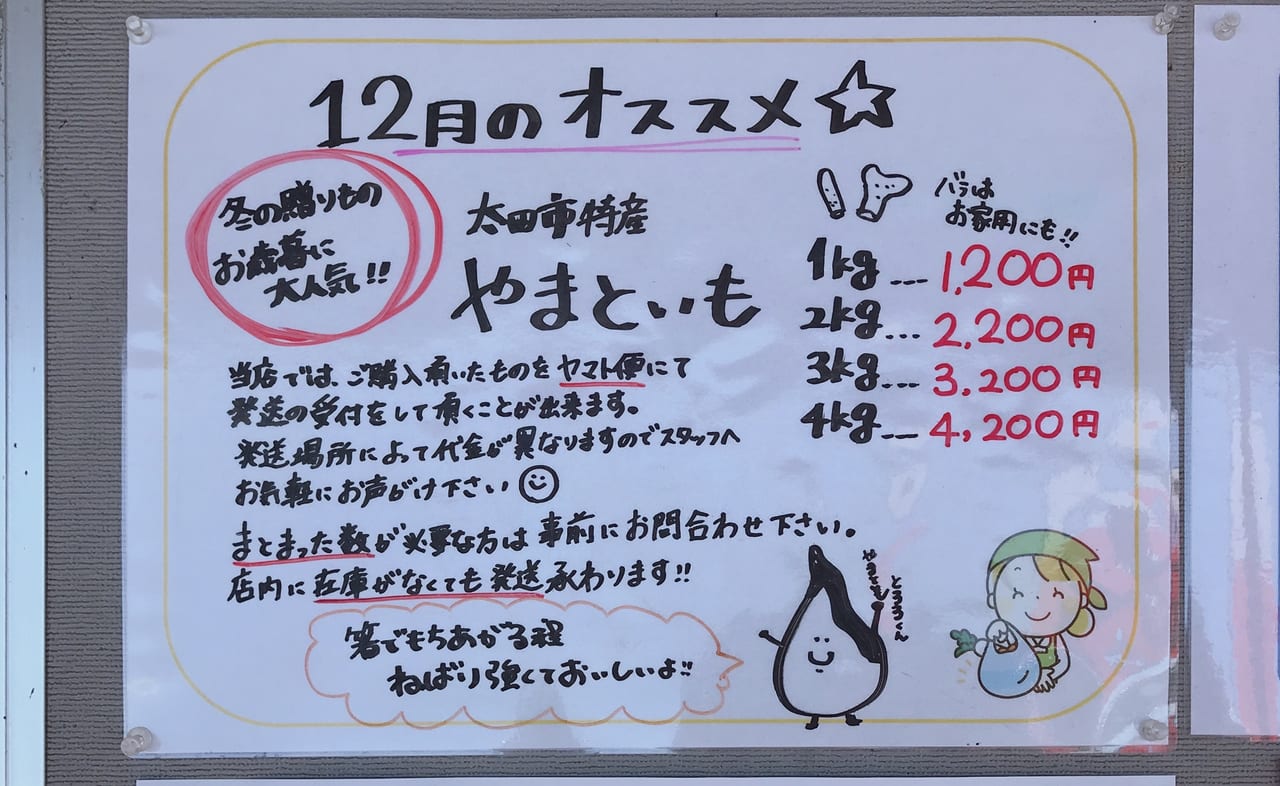 12月のオススメ☆
冬の贈りもの
お歳暮に
大人気!!
太田市特産
やまといも
バラは
お家用にも!!
1kg... 1,200円
2kg... 2,200円
3kg... 3,200円
4kg... 4,200円
当店では、ご購入頂いたものをヤマト便にて
発送の受付をして頂くことが出来ます。
発送場所によって代金が異なりますのでスタッフへ
お気軽にお声がけ下さい
まとまった数が必要な方は事前にお問合わせ下さい。
店内に在庫がなくても発送承わります!!
箸でもちあがる程
ねばり強くておいしいよ!!